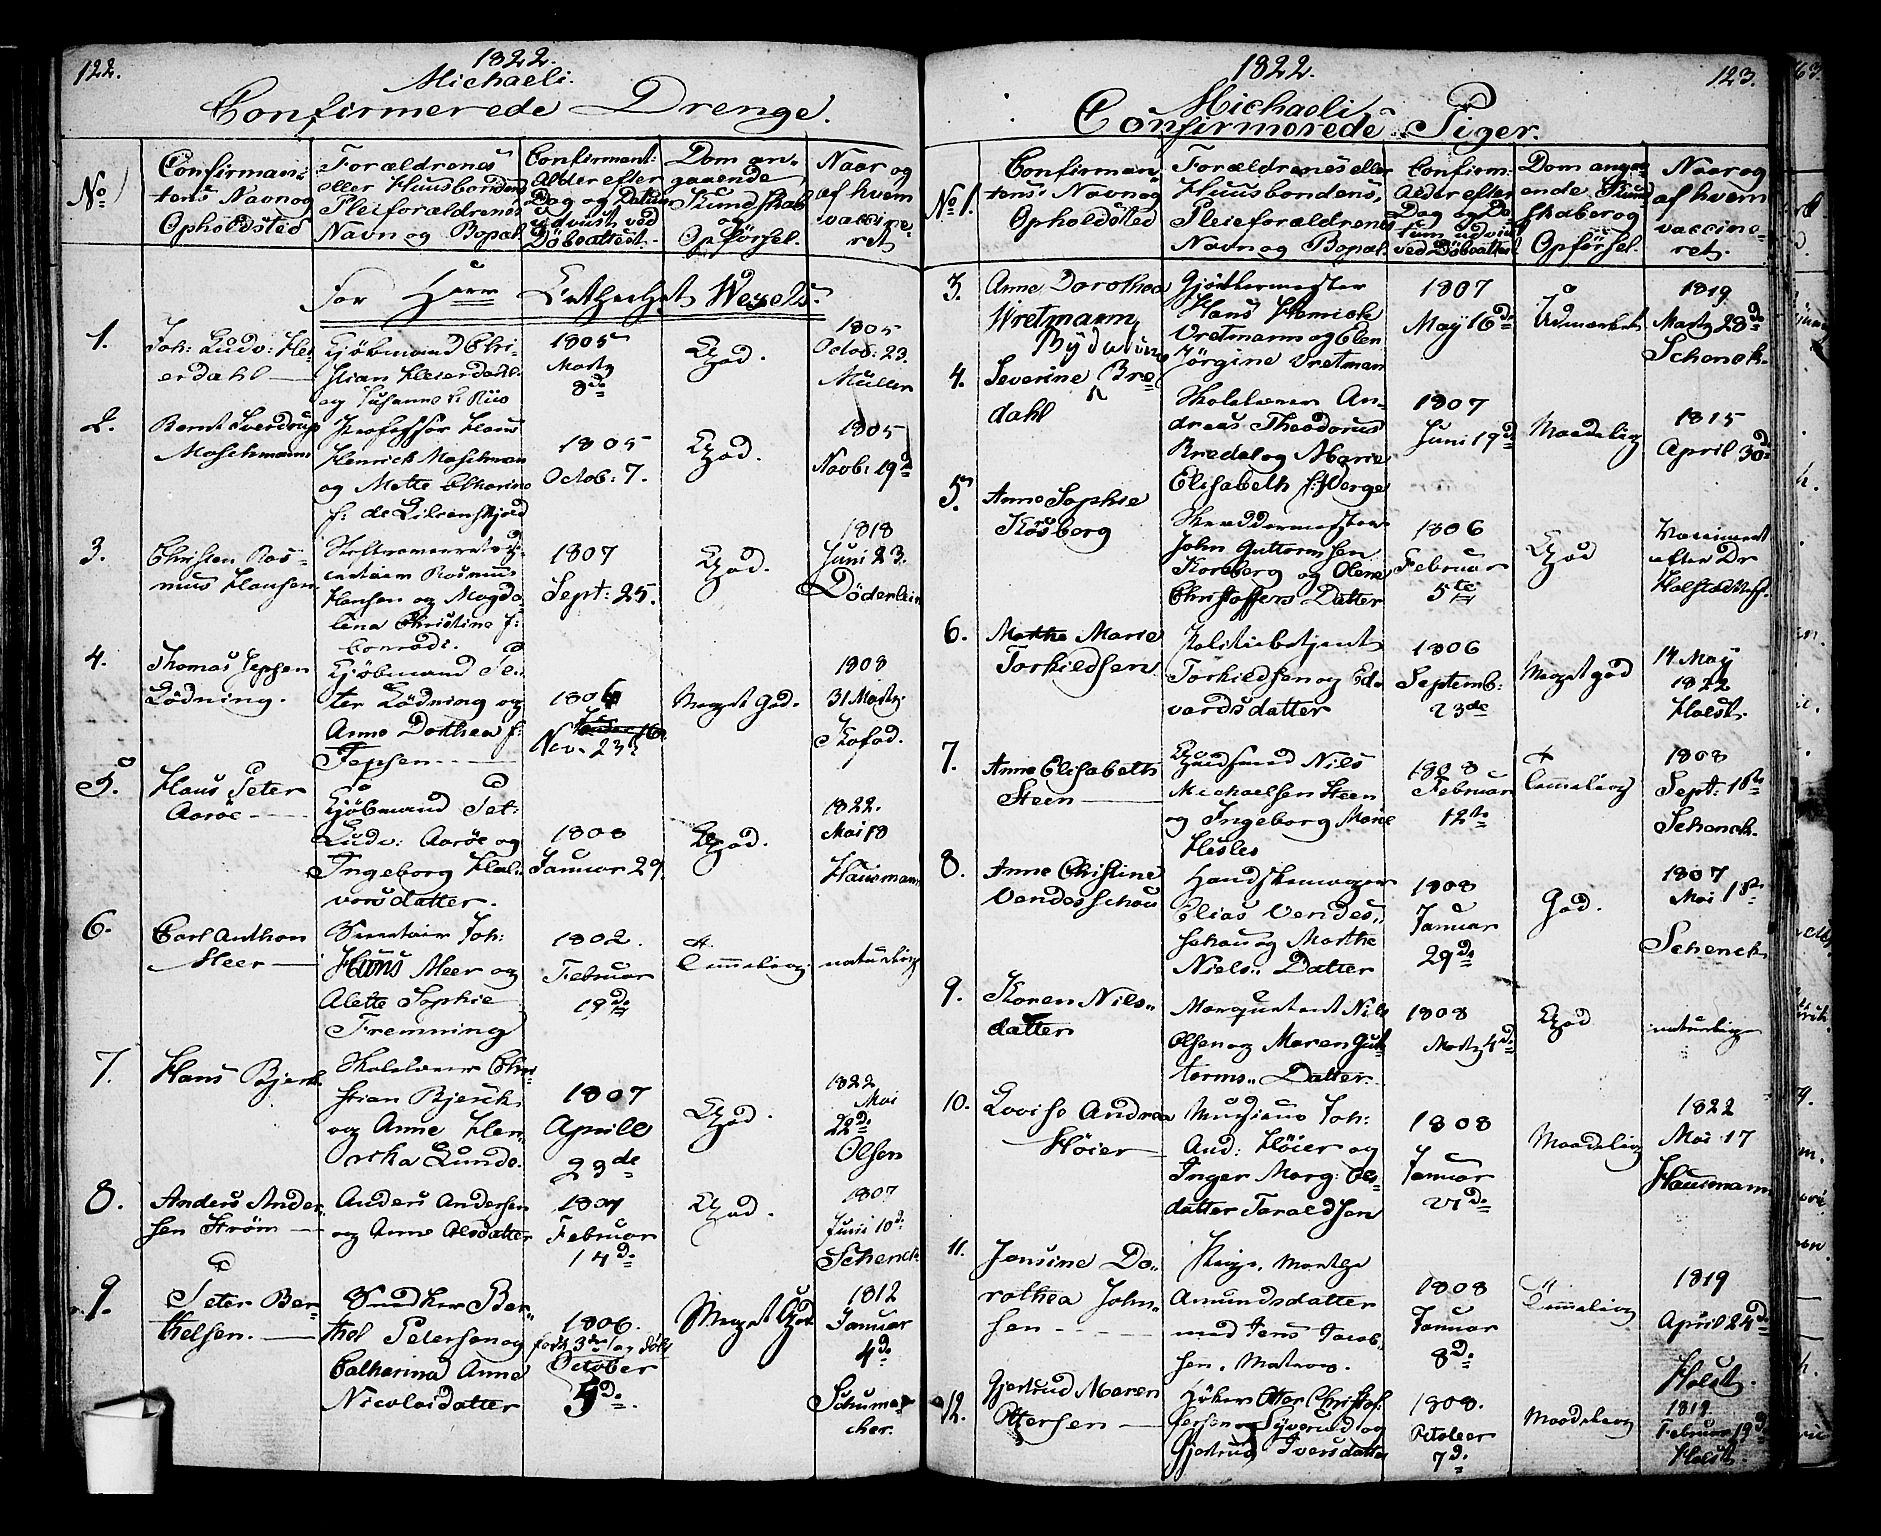 122.
1822.
Michaeli.
Confirmerede Drenge.
No
Confirman-
tens Navn og
Opholdsted
Forældrenes
eller Huusbondens
Pleiforældrenes
Navn og Bopæl
Confirmant:
Alder efter
Dag og Datum
udviist ved
Døbeattest.
Dom an-
gaaende
Kundskab
og
Opførsel.
Naar og
af hvem
vaccine-
ret
For Herr Wexels.
1.
Joh: Ludv: Hei
erdahl
Kjøbmand Chri-
stian Heierdahl
og Susanne f: Riis
1805
Marty
8de
God.
1805
Octob: 23.
Müller
2.
Bernt Sverdrup
Maschmann
Professor Hans
Henrich Maschman
og Mette Catharine
f: de Lilienskjold
1805
Octob: 7.
God.
1805
Novb: 19d
3.
Christen Ras-
mus Hansen
Rasmus
Hansen og Magda-
lena Christine f:
Conradi.
1807
Sept: 25.
God.
1818
Juni 23.
Döderlein
4.
Thomas Jepsen
Lödning.
Kjøbmand Pe-
ter Lödning og
Anne Dorthea f:
Jepsen
1806
Nov. 23d
Meget God.
1808
31 Marty.
Kofod.
5.
Hans Peter
Aarøe
Kjøbmand Pet:
Ludv: Aarøe og
Ingeborg Hal-
vorsdatter.
1808
Januar 29.
God.
1822.
Mai 18
Hausmann
6.
Carl Anthon
Meer
Secretair Joh:
Hans Meer og
Alette Sophie
Fremming
1802.
Februar
19de
Temmelig
naturlig
7.
Hans Bjerch
Skolelærer Chri-
stian Bjerch
og Anne Hen-
Lunde.
1807
Aprill
23de
God.
1822
Mai
22de
Olsen
8.
Anders Ander-
sen Strøm
Anders Andersen
og Anne Olsdatter
1807
Februar
14de
God.
1807
Juni 10d
Schenck
9.
Peter Ber-
thelsen.
Snedker Ber-
thel Petersen og
Catharina Anne
Nicolaidatter
1806.
født 3de og døbt
October
5de
Meget God
1812
Januar
4de
Schuma-
cher.
1822.
Michaeli
Confirmerede Piger.
123.
No.
Confirman-
tens Navn og
Opholdsted
Forældrenes eller
Huusbondens,
Pleieforældrenes
Navn og Bopæl
Confirm:
Alder efter
Dag og Da-
tum udviist
ved Døbeattest
Dom angaa-
ende Kund
skaber og
Opførsel.
Naar og
af hvem
vaccine-
ret.
3.
Anne Dorothea
Wretmann
Gjørtlermester
Hans Henrich
Vretmann og Elen
Jørgine Vretman
1807
May 16de
Udmærket
1819
Marty 28de
Schenck
4.
Severine Bre-
dahl
Skolelærer An-
dreas Theodorus
Bredal og Marie
Elisabeth f: Verge
1807
Juni 19de
Maadelig
1815
April 30de
5.
Anne Sophie
Korsberg
Skræddermester
John Guttormsen
Korsberg og Olene
Christoffers Datter
1806
Februar
5te
God
Vaccineret
efter Dr
Holsts Attest.
6.
Marthe Marie
Torkildsen
Politiebetjent
Torkildsen og Ed-
vardsdatter
1806
Septemb:
23de
Meget god
14 May
1822
Holst.
7.
Anne Elisabeth
Steen
Nils
Michaelsen Steen
og Ingeborg Marie
Hesles
1808
Februar
12te
Temmelig
1808
Sept: 18de
Schenck.
8.
Anne Christine
Vendesschou
Handskemager
Elias Vendes-
schou og Marthe
Niels- Datter
1808
Januar
29de
God.
1807
Mai 18de
Schenck
9.
Karen Nils-
datter
Marquetent Nils
Olsen og Maren Gut-
torms- Datter
1808
Marty 4de
God
naturlig
10.
Lovise Andrea
Høier
Musicus Joh:
And: Høier og
Inger Marg: Ols-
datter Taraldsen
1808
Januar
21de
Maadelig
1822
Mai 17
Hausmann
11.
Jensine Do-
rothea John-
sen
Pige, Marthe
Amundsdatter
med Jens Jacob-
sen, Matros.
1808
Januar
8de
Temmelig
1819
April 24de
Holst.
12.
Gjertrud Maren
Ottersen
Høker Otter Christof-
fersen Syverud og
Gjertrud Iversdatter
1808.
October
7de
Maadelig
1819
Februar 19de
Holst.